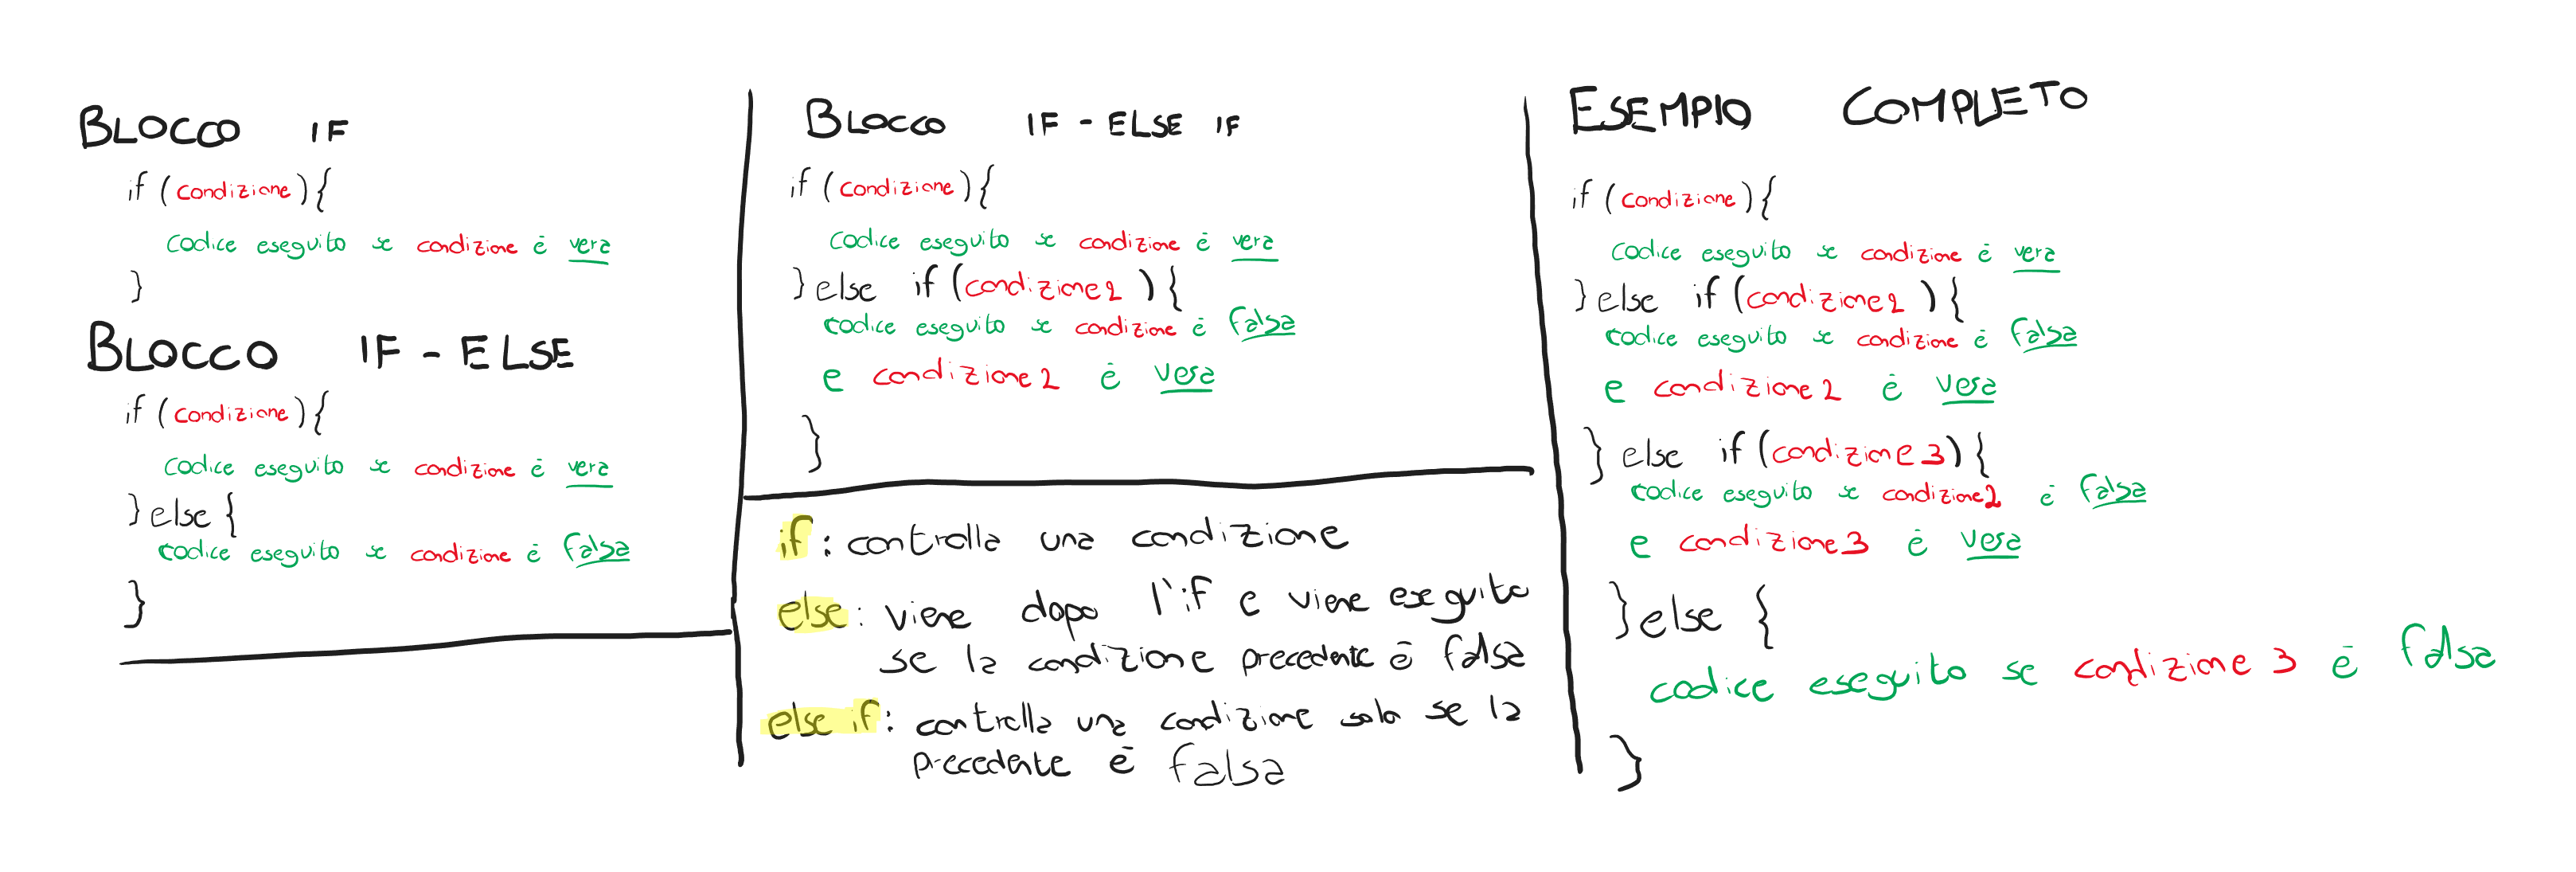 BLOCCO IF
if (condizione){
codice eseguito se condizione è vera
}
BLOCCO IF - ELSE
if (condizione){
codice eseguito se condizione è vera
}else{
codice eseguito se condizione è falsa
}
BLOCCO IF - ELSE IF
if (condizione){
codice eseguito se condizione è vera
}else if (condizione2){
codice eseguito se condizione è falsa
e condizione2 è vera
}
if: controlla una condizione
else: viene dopo l'if e viene eseguito
se la condizione precedente è falsa
else if: controlla una condizione solo se la
precedente è falsa
ESEMPIO COMPLETO
if (condizione){
codice eseguito se condizione è vera
}else if (condizione2){
codice eseguito se condizione è falsa
e condizione2 è vera
} else if (condizione3){
codice eseguito se condizione2 è falsa
e condizione3 è vera
}else {
codice eseguito se condizione 3 è falsa
}